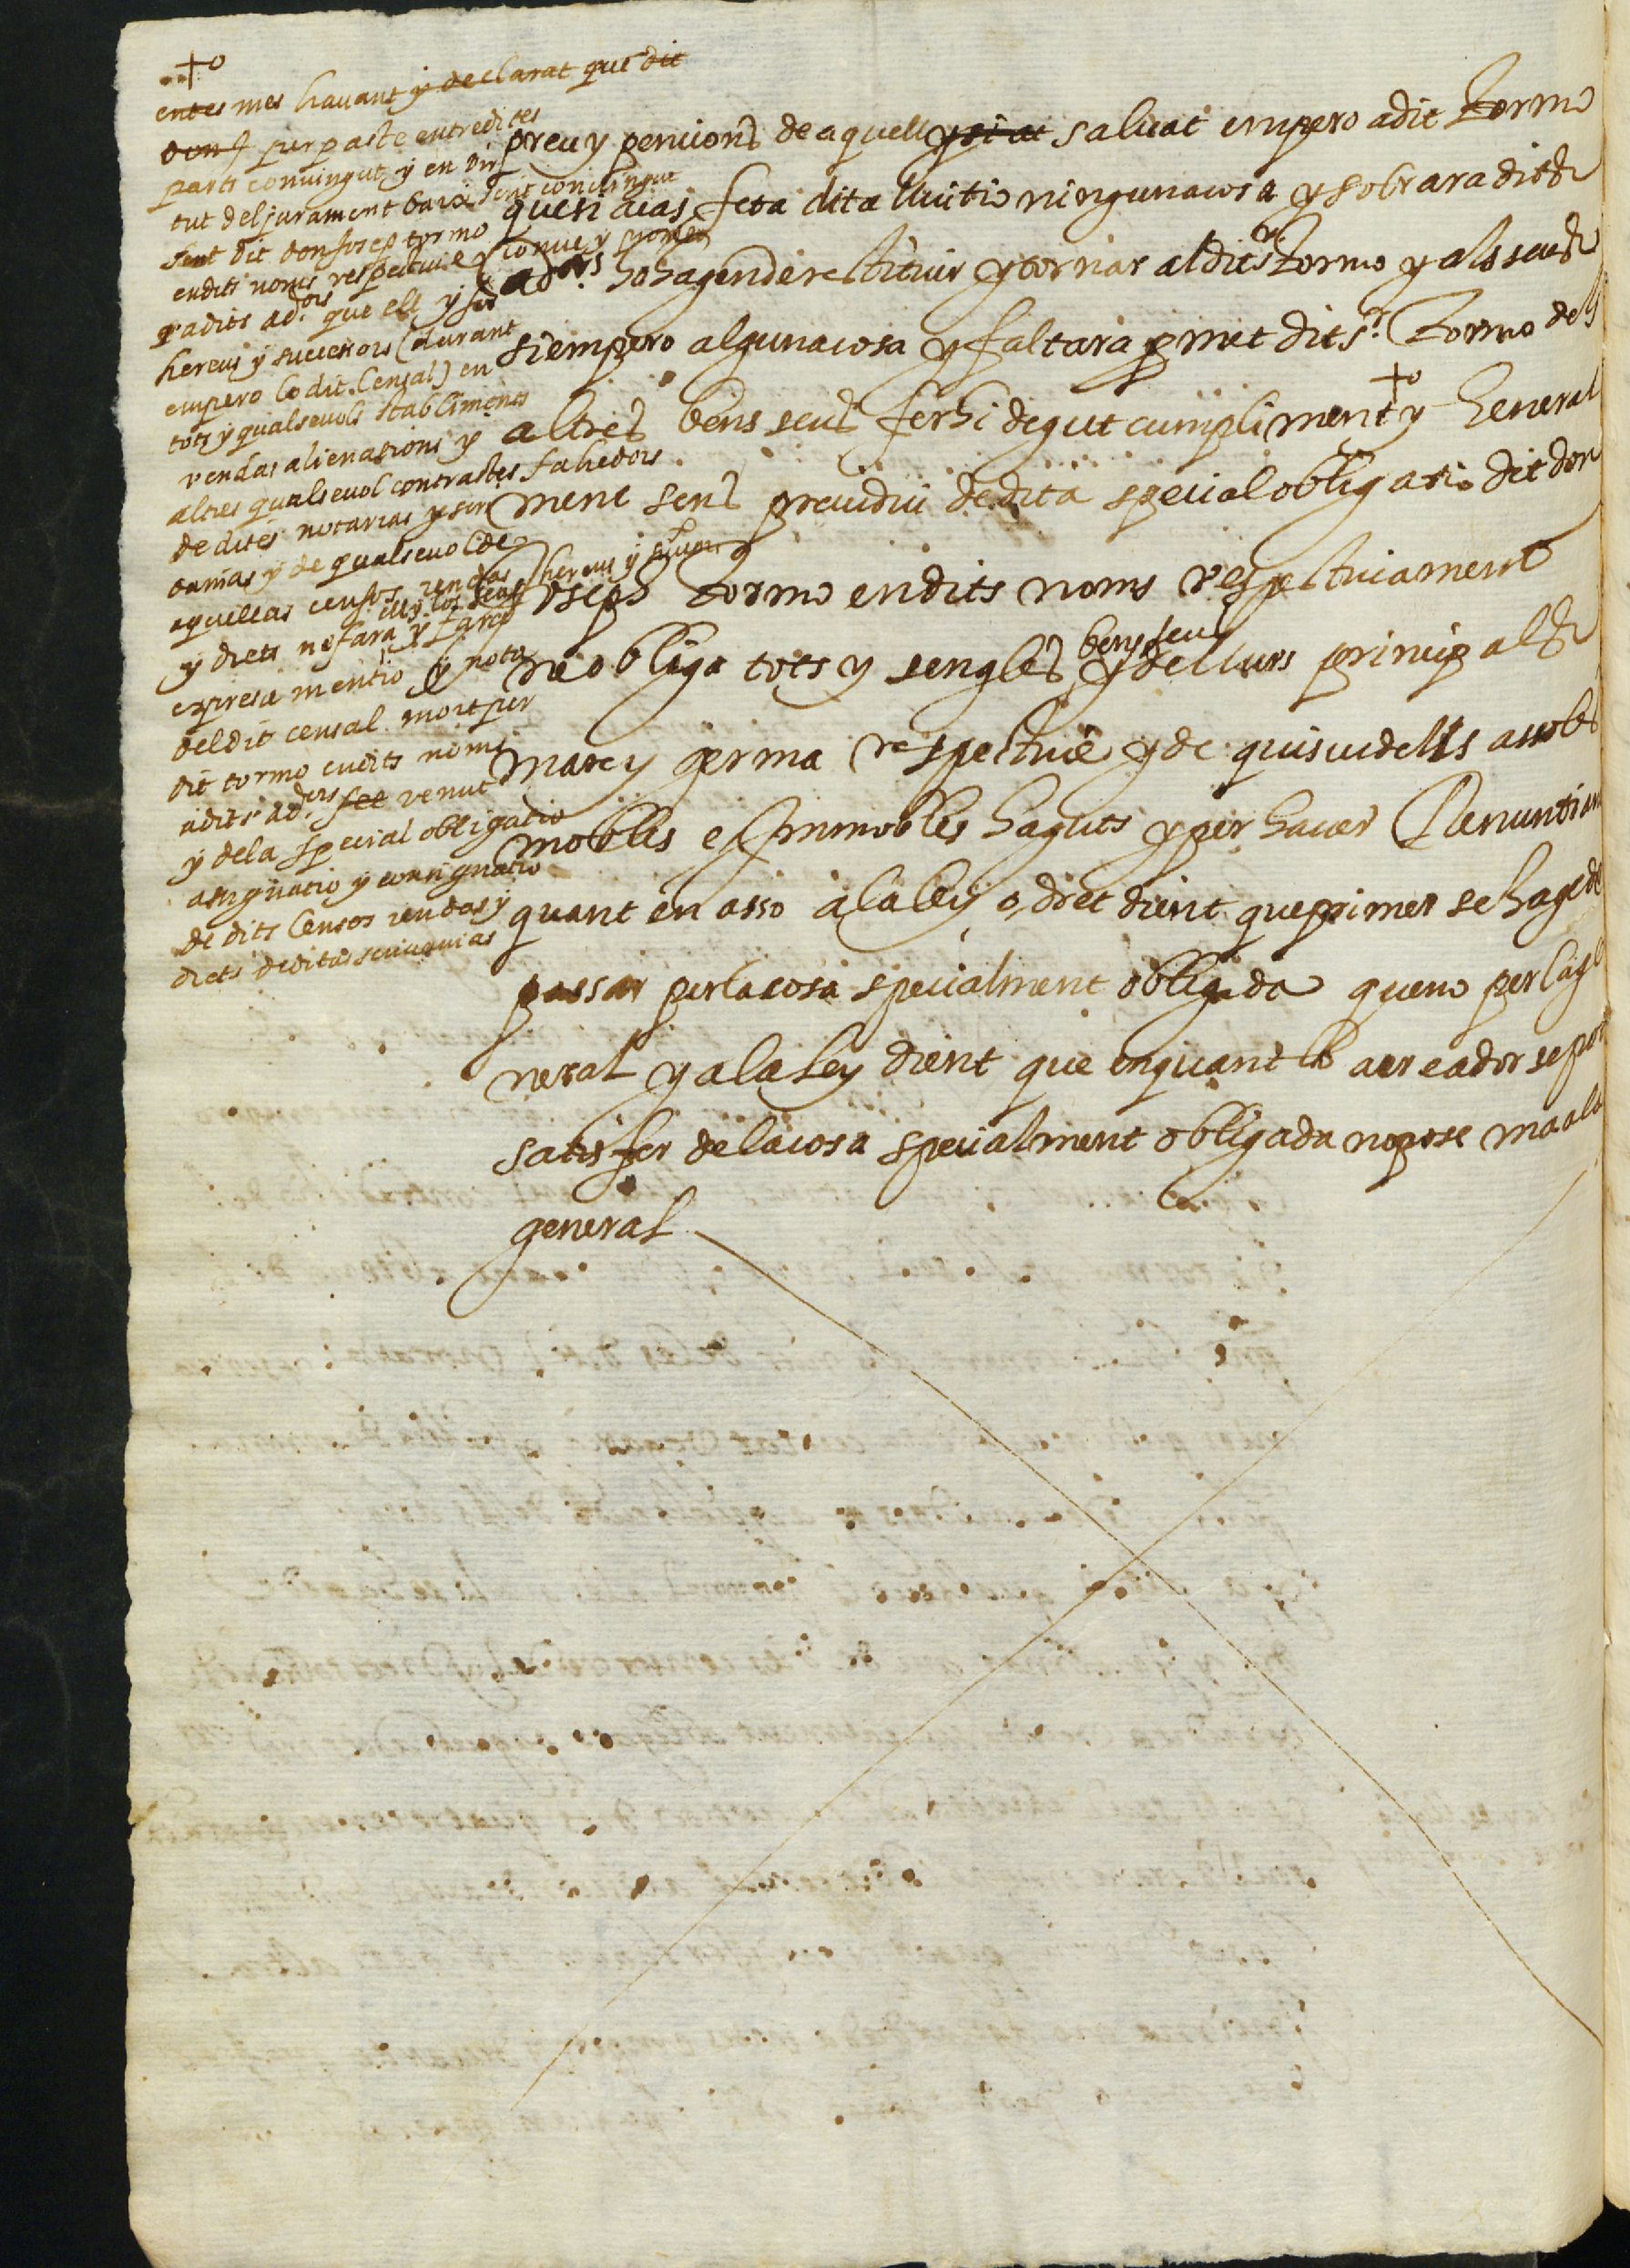 +o
entes mes havant y declarat que dit
don J per paste entredites
parts convingut y en vir
tut del jurament baix scrit convingut
sent dit don Josep tormo
endits noms respective convé y promet
a dits ad.ors que ell y sos
hereus y successors (durant
empero lo dit Censal) en
tots y qualsevols stabliments
vendas alienasions y
altres qualsevol contractes fahedors
de dites notarias y scri
vanias y de qualsevol de
aquellas censos rendas
y drets no fara y fara ell y los seus hereus y succ.ors
expresa mentio y nota
del dit censal mort per
dit tormo endits noms
a dits ad.ors fet venut
y de la special obligatio
assignatio y consignatio
de dits Censos rendas y
drets de ditas scrivanias
preu y pencions de aquell y si at salvat empero a dit Tormo
que si acas feta dita lluitio ninguna cosa y sobrara dits
ad.ors ho hagen de restituir y tornar al dit s.r Tormo y als seus
si empero alguna cosa y faltara promet dit s.r Tormo dels
altres bens seus ferhi degut cumpliment +o y General
ment sens prejudici de dita special obligatio dit don
Joseph Tormo en dits noms respectivament
ne obliga tots y sengles bens seus y de llurs principals
mare y germa respective y de quiscu dells assoles
mobles e immobles haguts y per haver Renuntiant
quant en asso a la ley o dret dient que primer se hage de
passar per la cosa specialment obligada que no per la ge
neral y a la ley dient que en quant lo acreador se pot
satisfer de la cosa specialment obligada no pose ma a la
general